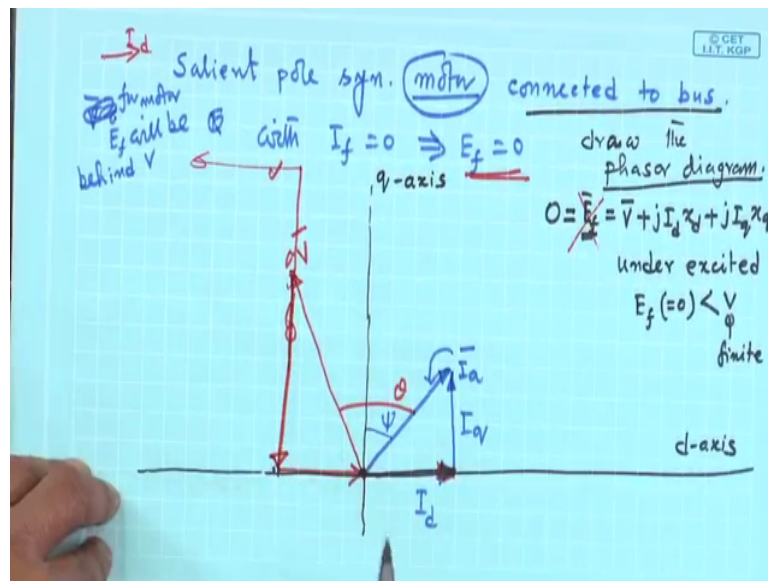 © CET
I.I.T. KGP
Id
Salient pole syn. motor connected to bus.
for motor
Ef will be
behind V
with If = 0 ⇒ Ef = 0
draw the
phasor diagram.
q-axis
0 = Ēf = V̄ + jId xd + jIq xq
under excited
Ef (=0) < V
finite
Īa
θ
ψ
Iq
d-axis
Id